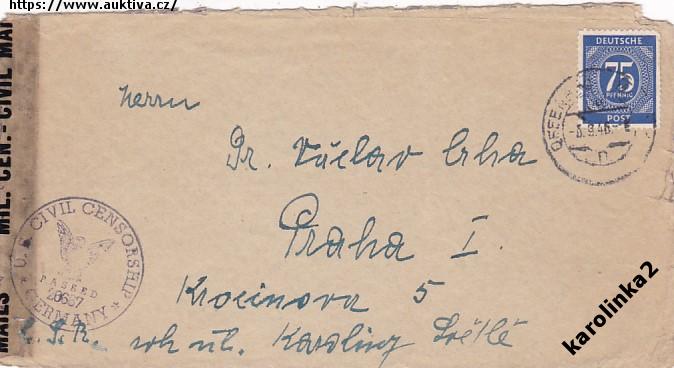 https://www.auktiva.cz/
DEUTSCHE
75
PFENNIG
POST
OFFENB
8.46
n
Herrn
Dr. Václav Crha
Praha I.
Krocínova 5
Č.S.R. roh ul. Karoliny Světlé
MIL. CEN. - CIVIL MAI
U.S. CIVIL CENSORSHIP
PASSED
GERMANY
karolinka2